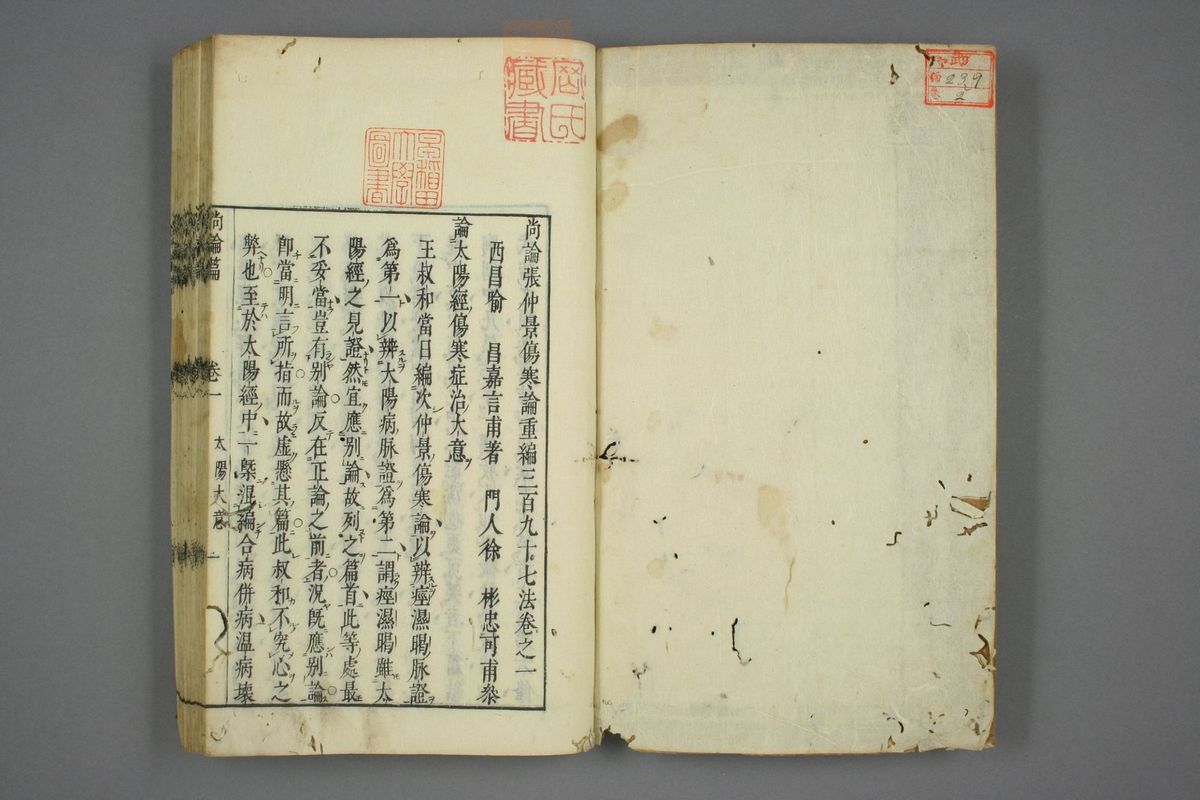 尚論張仲景傷寒論重編三百九十七法卷之一
西昌喻 昌嘉言甫著 門人徐 彬忠可甫叅
論太陽經傷寒症治大意
王叔和當日編次仲景傷寒論以辨痙濕暍脉證
爲第一以辨太陽病脉證爲第二謂痙濕暍雖太
陽經之見證然宜應别論故列之篇首此等處最
不妥當豈有别論反在正論之前者況旣應别論
卽當明言所指而故虛懸其篇此叔和不究心之
弊也至於太陽經中一槩混編合病併病温病壞
尚論篇 卷一 太陽大意 一
圖書
大學
早稲田
藏書
氏
239
2